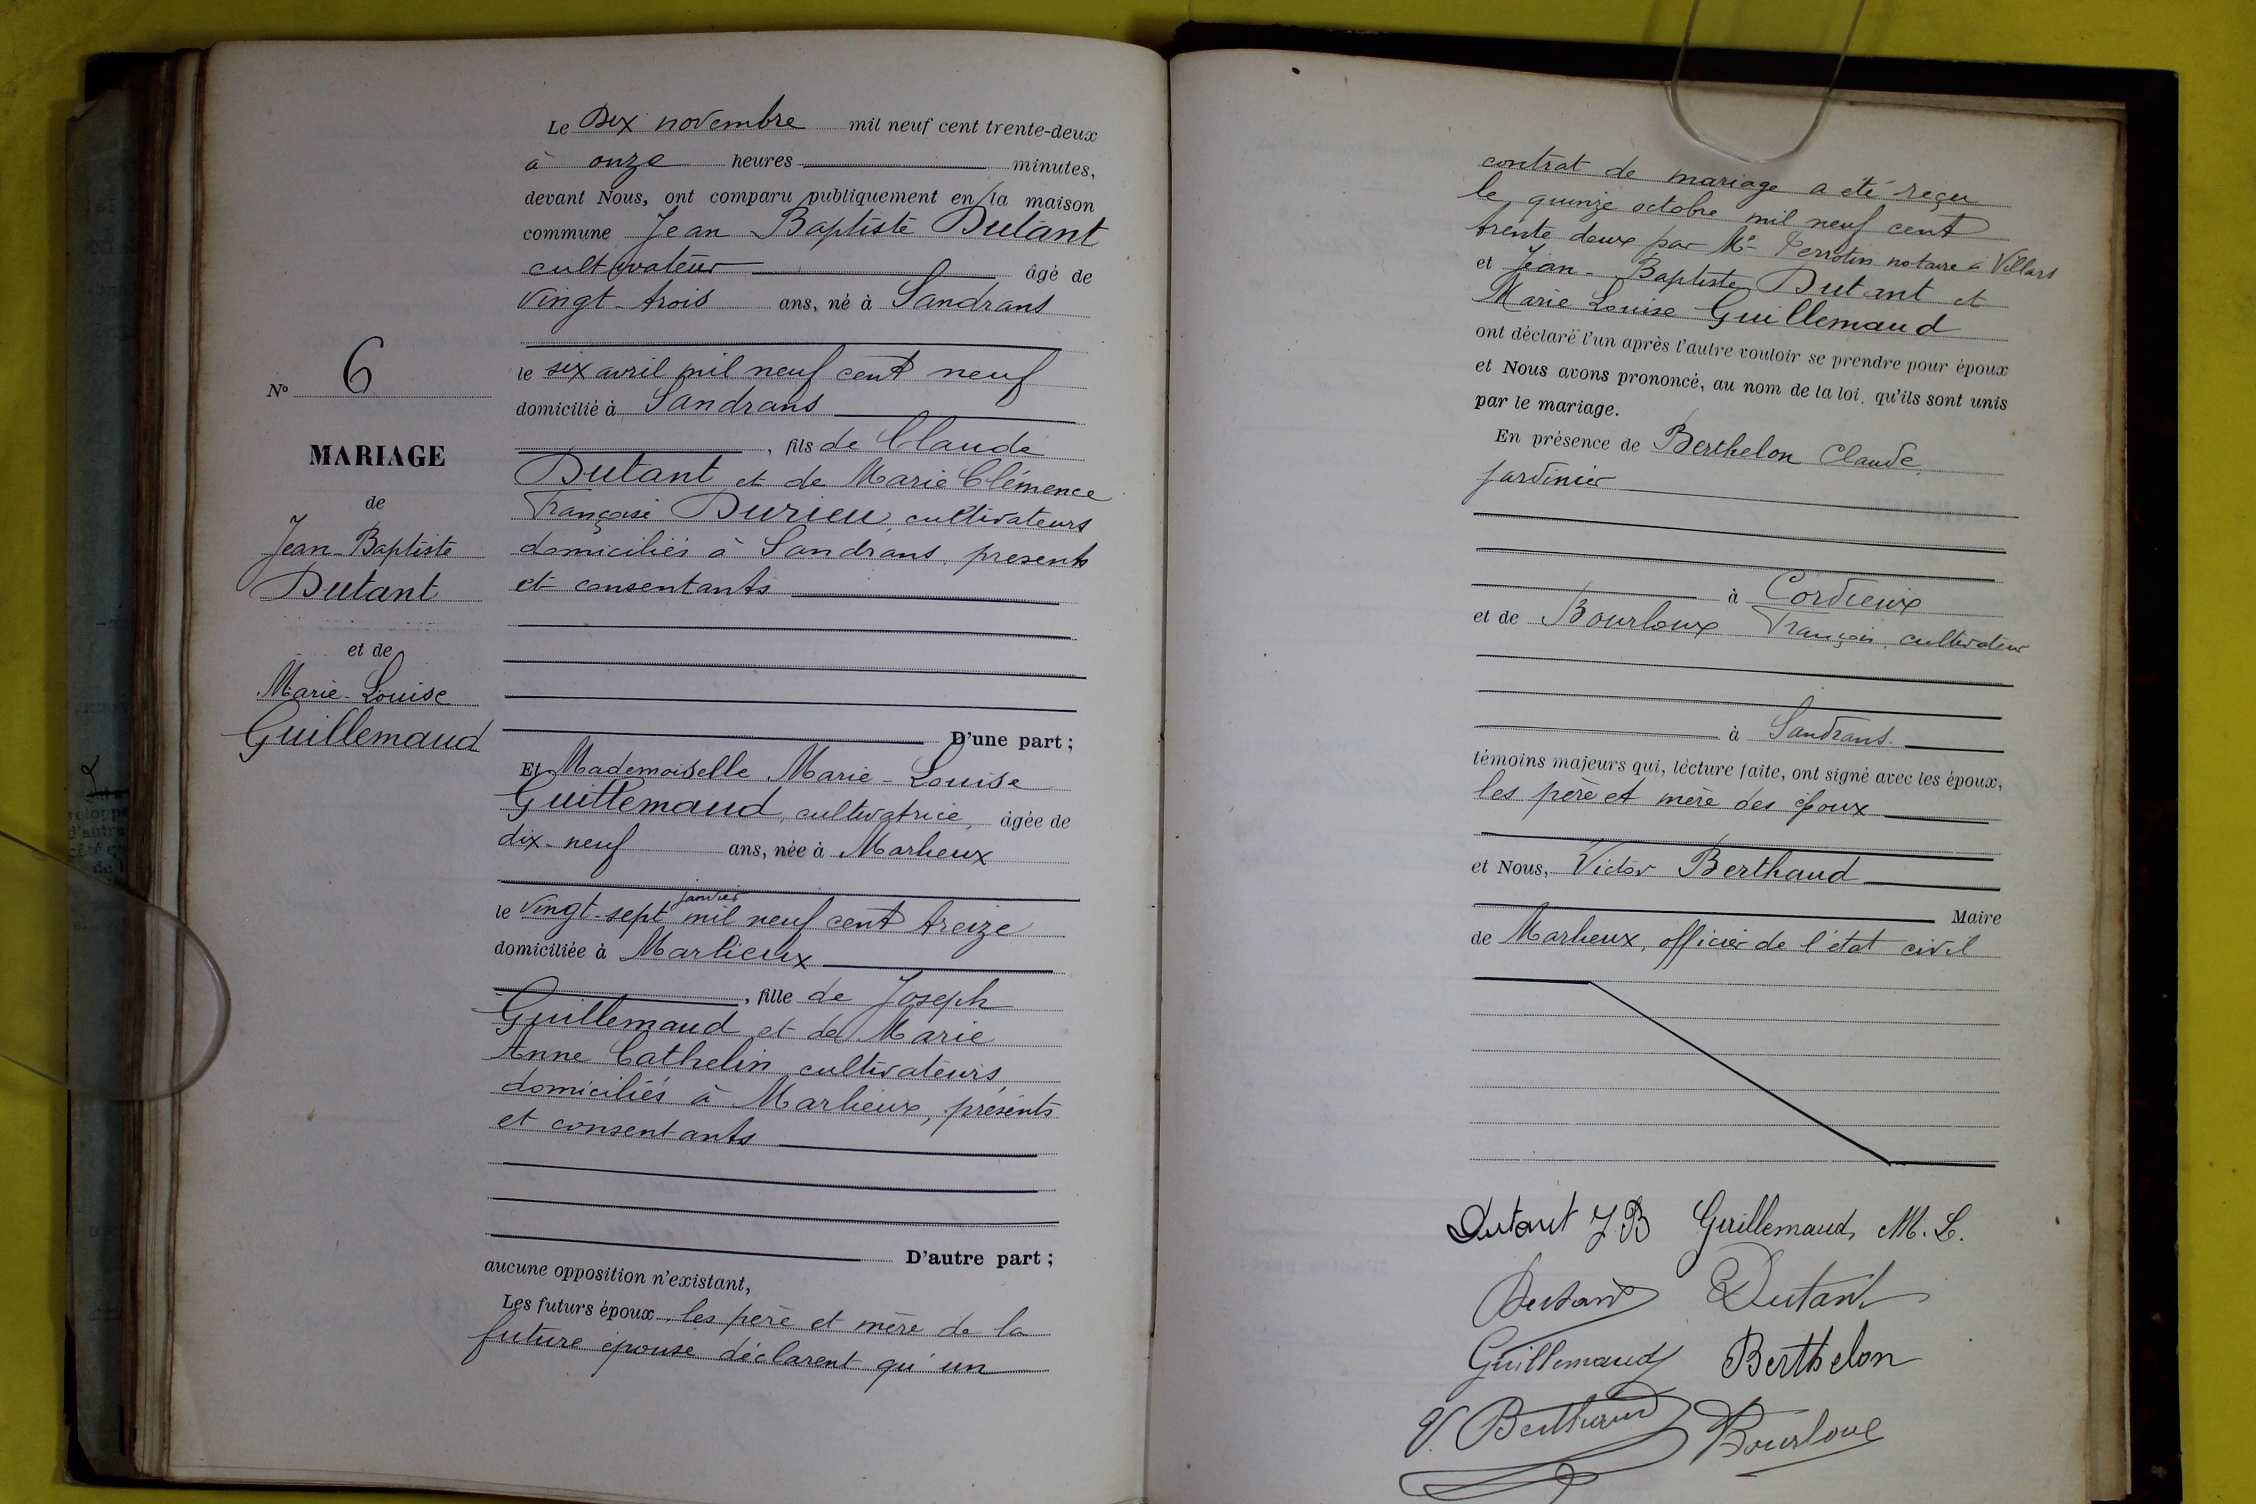 N° 6
MARIAGE
de
Jean-Baptiste
Dutant
et de
Marie-Louise
Guillemaud
Le Dix novembre mil neuf cent trente-deux
à onze heures minutes,
devant Nous, ont comparu publiquement en la maison
commune Jean Baptiste Dutant
cultivateur âgé de
vingt-trois ans, né à Sandrans
le six avril mil neuf cent neuf
domicilié à Sandrans
, fils de Claude
Dutant et de Marie Clémence
Françoise Durieu, cultivateurs
domiciliés à Sandrans, présents
et consentants
D'une part ;
Et Mademoiselle Marie-Louise
Guillemaud, cultivatrice, âgée de
dix-neuf ans, née à Marlieux
janvier
le vingt-sept mil neuf cent treize
domiciliée à Marlieux
, fille de Joseph
Guillemaud et de Marie
Anne Cathelin, cultivateurs,
domiciliés à Marlieux, présents
et consentants
D'autre part ;
aucune opposition n'existant,
Les futurs époux, les père et mère de la
future épouse déclarent qu'un
contrat de mariage a été reçu
le quinze octobre mil neuf cent
trente deux par Me Perrotin notaire à Villars
et Jean-Baptiste Dutant et
Marie Louise Guillemaud
ont déclaré l'un après l'autre vouloir se prendre pour époux
et Nous avons prononcé, au nom de la loi, qu'ils sont unis
par le mariage.
En présence de Berthelon Claude
jardinier
à Cordieux
et de Bourloux François, cultivateur
à Sandrans
témoins majeurs qui, lecture faite, ont signé avec les époux,
les père et mère des époux
et Nous, Victor Berthaud
Maire
de Marlieux, officier de l'état civil
Dutant J B Guillemaud, M. L.
Dutant Dutant
Guillemaud Berthelon
V. Berthaud Bourloux